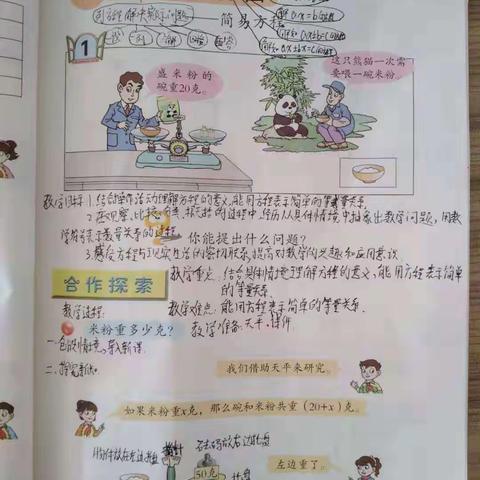 列方程解决实际问题
简易方程
1
盛米粉的
碗重20克。
这只熊猫一次需
要喂一碗米粉。
教学目标:1.结合操作活动理解方程的意义,能用方程表示简单的等量关系。
2.在观察、比较、
的过程中,经历从具体情境中抽象出数学问题,用数
学符号表示数量关系的过程
你能提出什么问题?
3.感受方程与现实生活的密切联系,提高对数学的兴趣和应用意识
合作探索
教学重点:结合具体情境理解方程的意义,能用方程表示简单
的等量关系
教学过程:
教学难点:能用方程表示简单的等量关系。
米粉重多少克?
教学准备:天平、课件
一、创设情境,导入新课
二、探究新知
我们借助天平来研究。
如果米粉重x克,那么碗和米粉共重(20+x)克。
物体放在左边托盘
指针
砝码放右边托盘
左边重了。
50克